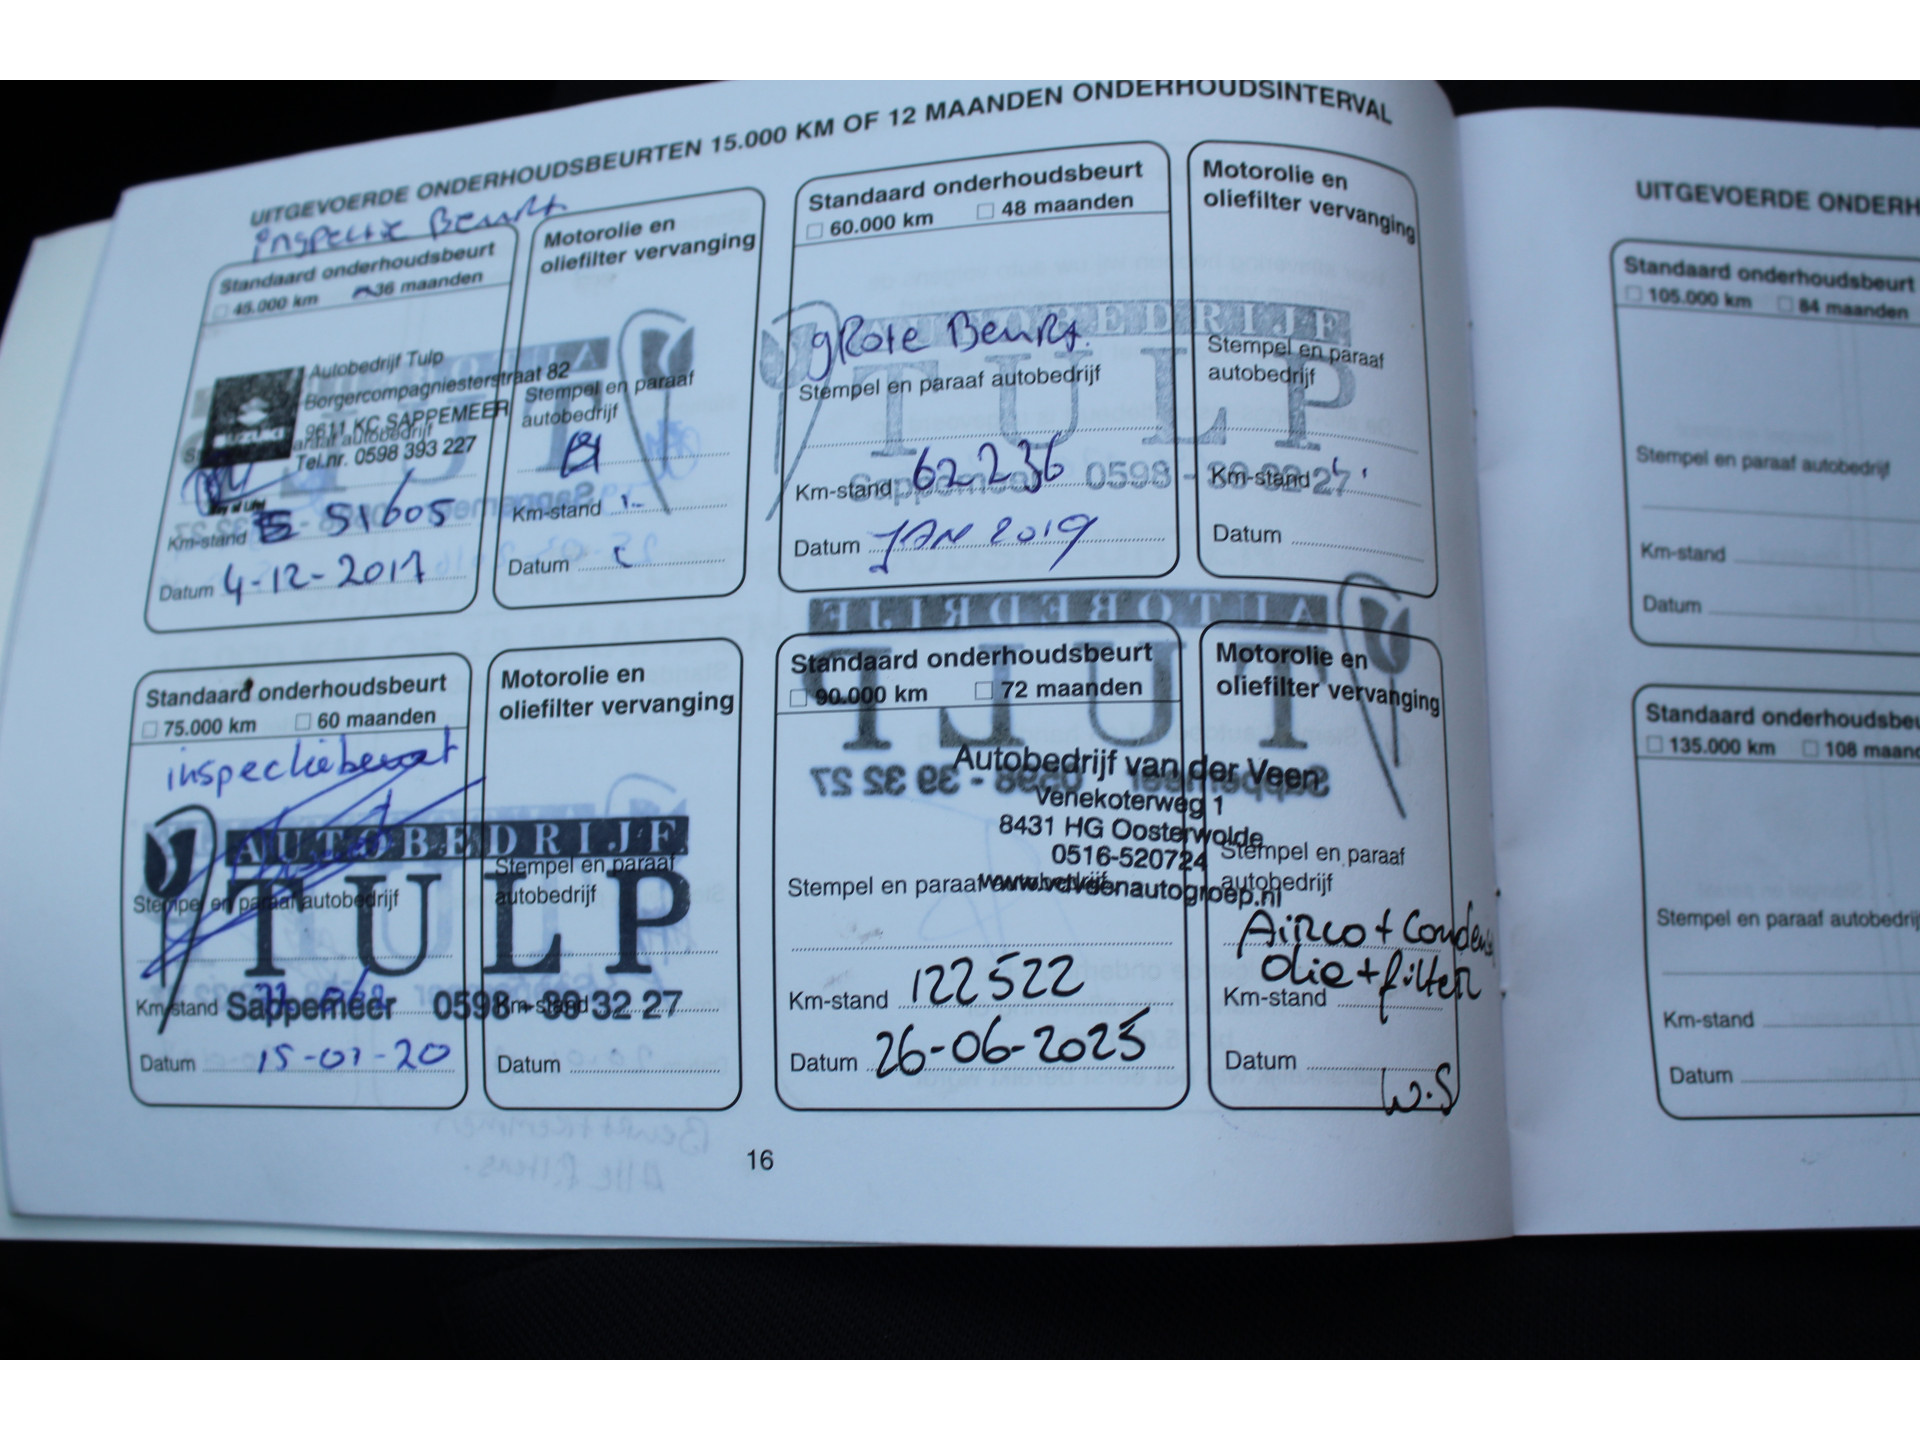 UITGEVOERDE ONDERHOUDSBEURTEN 15.000 KM OF 12 MAANDEN ONDERHOUDSINTERVAL
inspectie Beurt
Standaard onderhoudsbeurt
45.000 km 36 maanden
Autobedrijf Tulp
Borgercompagniesterstraat 82
9611 KC SAPPEMEER
paraaf autobedrijf
Tel.nr. 0598 393 227
Km-stand 51605
Datum 4-12-2017
Motorolie en
oliefilter vervanging
Stempel en paraaf
autobedrijf
Km-stand
Datum
Standaard onderhoudsbeurt
60.000 km 48 maanden
grote Beurt.
AUTOBEDRIJF
TULP
Stempel en paraaf autobedrijf
Sappemeer 0598 - 39 32 27
Km-stand 62236
Datum JAN 2019
Motorolie en
oliefilter vervanging
Stempel en paraaf
autobedrijf
Km-stand
Datum
Standaard onderhoudsbeurt
75.000 km 60 maanden
inspectiebeurt
AUTOBEDRIJF
TULP
Stempel en paraaf autobedrijf
Km-stand
Sappemeer 0598 - 39 32 27
Datum 15-01-20
Motorolie en
oliefilter vervanging
Stempel en paraaf
autobedrijf
Km-stand
Datum
Standaard onderhoudsbeurt
90.000 km 72 maanden
Autobedrijf van der Veen
Venekoterweg 1
8431 HG Oosterwolde
0516-520724
www.vdveenautogroep.nl
Stempel en paraaf autobedrijf
Km-stand 122522
Datum 26-06-2025
Motorolie en
oliefilter vervanging
Stempel en paraaf
autobedrijf
Airco + Condens
olie + filter
Km-stand
Datum
W.S
16
UITGEVOERDE ONDERH
Standaard onderhoudsbeurt
105.000 km 84 maanden
Stempel en paraaf autobedrijf
Km-stand
Datum
Standaard onderhoudsbeu
135.000 km 108 maand
Stempel en paraaf autobedrij
Km-stand
Datum